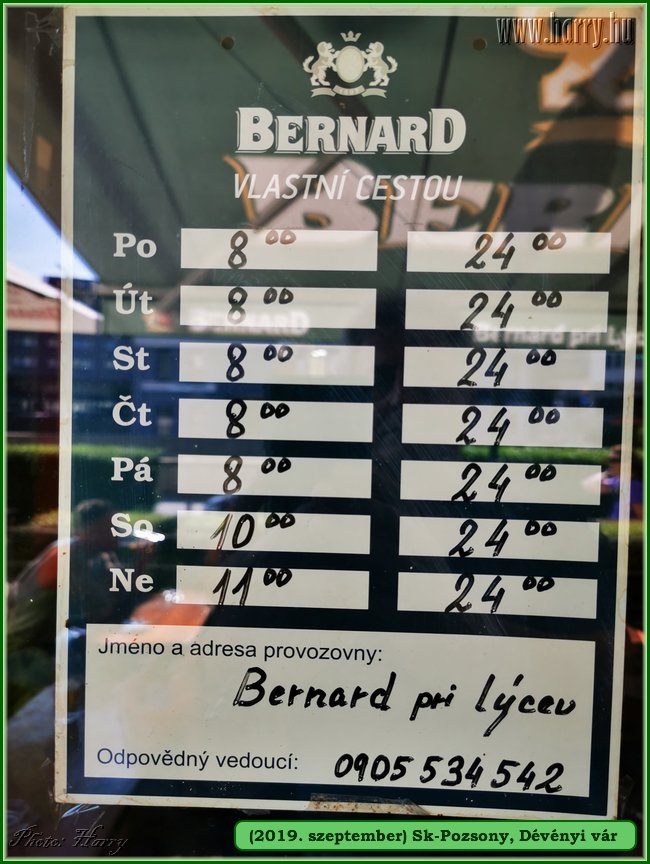 www.harry.hu
BERNARD
VLASTNÍ CESTOU
Po 8⁰⁰ 24⁰⁰
Út 8⁰⁰ 24⁰⁰
St 8⁰⁰ 24⁰⁰
Čt 8⁰⁰ 24⁰⁰
Pá 8⁰⁰ 24⁰⁰
So 10⁰⁰ 24⁰⁰
Ne 11⁰⁰ 24⁰⁰
Jméno a adresa provozovny:
Bernard pri lýceu
Odpovědný vedoucí: 0905 534 542
(2019. szeptember) Sk-Pozsony, Dévényi vár
Photo: Harry